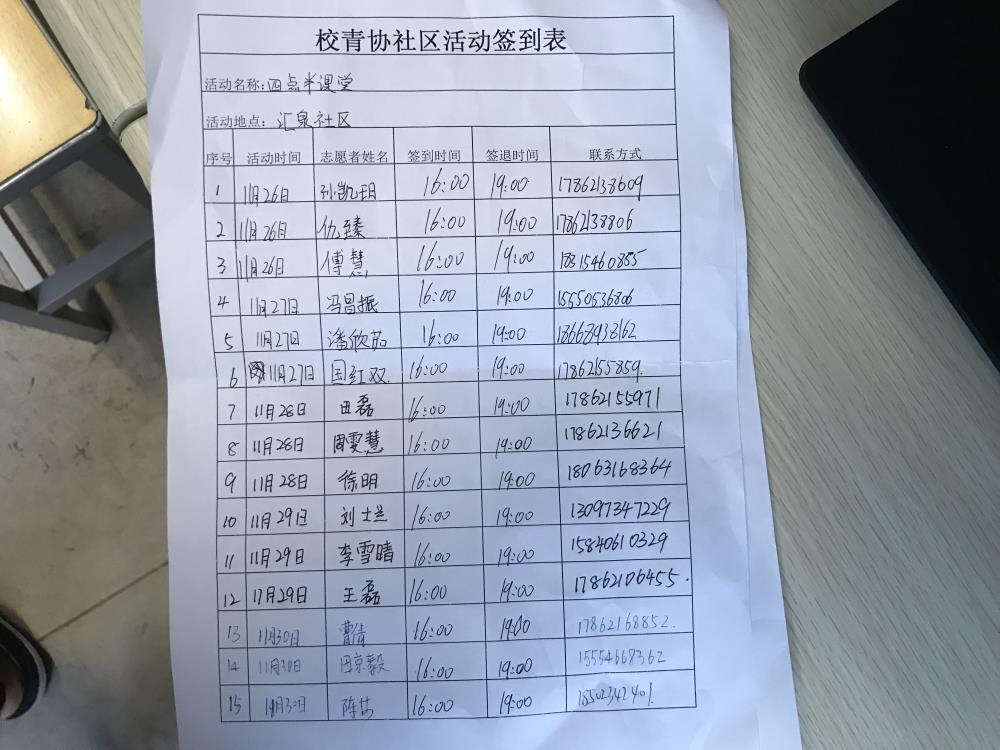 校青协社区活动签到表
活动名称:四点半课堂
活动地点: 汇泉社区
序号 活动时间 志愿者姓名 签到时间 签退时间 联系方式
1 11月26日 孙凯玥 16:00 19:00 17862138609
2 11月26日 仇臻 16:00 19:00 17862138806
3 11月26日 傅慧 16:00 19:00 18315460855
4 11月27日 冯昌振 16:00 19:00 15550536806
5 11月27日 潘欣茹 16:00 19:00 18668938162
6 11月27日 国红双 16:00 19:00 17862155859
7 11月28日 田磊 16:00 19:00 17862155971
8 11月28日 周雯慧 16:00 19:00 17862136621
9 11月28日 徐明 16:00 19:00 18063168364
10 11月29日 刘士兰 16:00 19:00 13097347229
11 11月29日 李雪晴 16:00 19:00 15840610329
12 11月29日 王磊 16:00 19:00 17862106455.
13 11月30日 曹倩 16:00 19:00 17862168852.
14 11月30日 田京毅 16:00 19:00 15554668362
15 11月30日 16:00 19:00 18502342401.